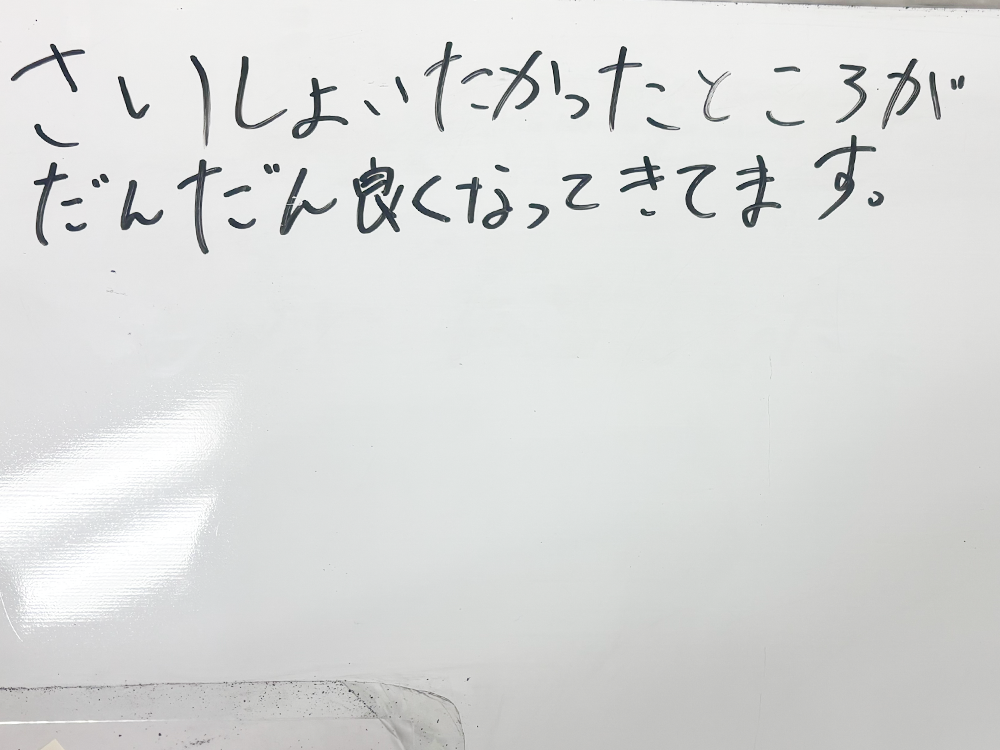 さいしょいたかったところが
だんだん良くなってきてます。